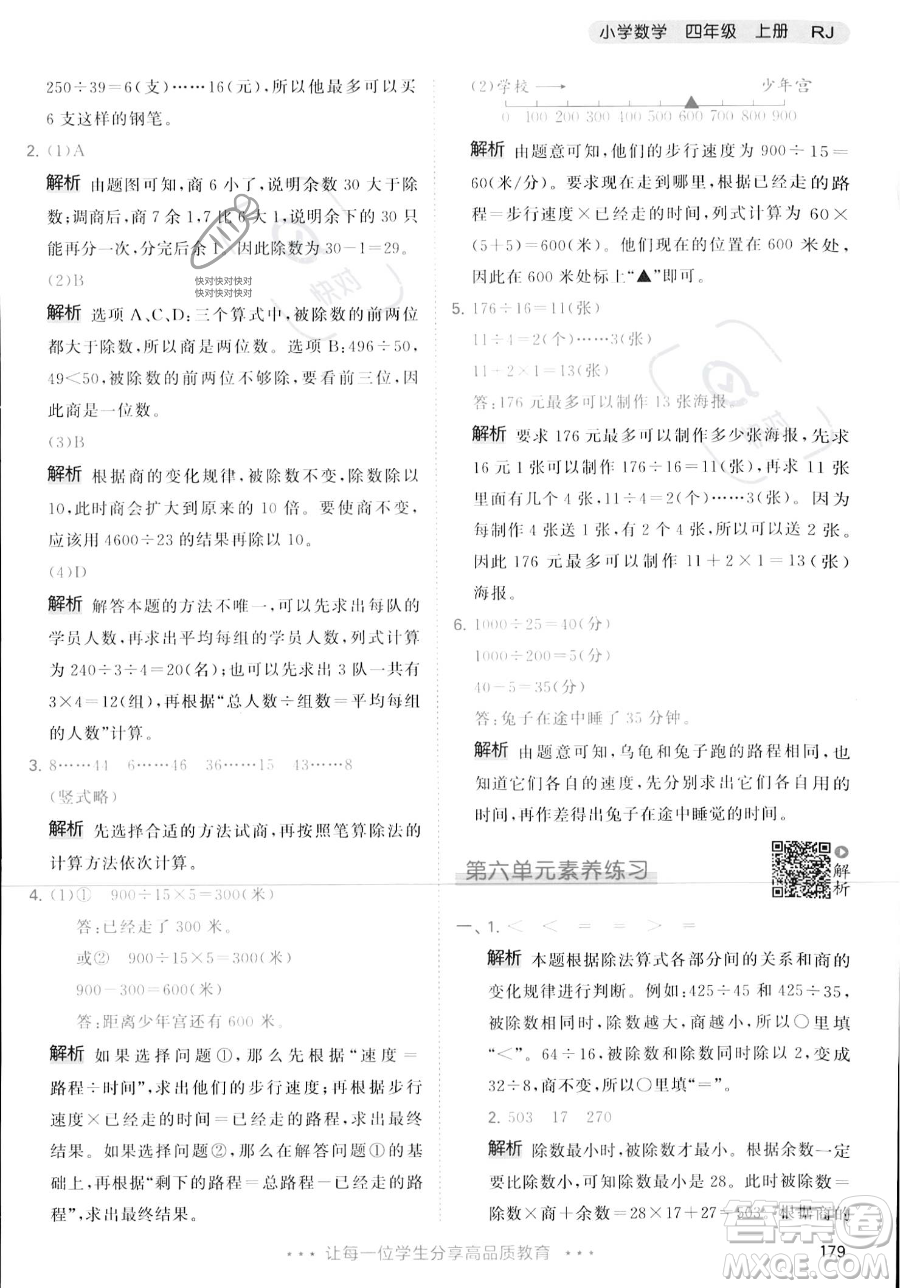 小学数学 四年级 上册 RJ
250÷39=6(支)……16(元),所以他最多可以买
6支这样的钢笔。
2. (1)A
解析 由题图可知,商6小了,说明余数30大于除
数;调商后,商7余1,7比6大1,说明余下的30只
能再分一次,分完后余1。因此除数为30-1=29。
快对快对快对
快对快对快对
(2)B
解析 选项A、C、D:三个算式中,被除数的前两位
都大于除数,所以商是两位数。选项B:496÷50,
49<50,被除数的前两位不够除,要看前三位,因
此商是一位数。
(3)B
解析 根据商的变化规律,被除数不变,除数除以
10,此时商会扩大到原来的10倍。要使商不变,
应该用4600÷23的结果再除以10。
(4)D
解析 解答本题的方法不唯一,可以先求出每队的
学员人数,再求出平均每组的学员人数,列式计算
为240÷3÷4=20(名);也可以先求出3队一共有
3×4=12(组),再根据“总人数÷组数=平均每组
的人数”计算。
3. 8……44 6……46 36……15 43……8
(竖式略)
解析 先选择合适的方法试商,再按照笔算除法的
计算方法依次计算。
4. (1)① 900÷15×5=300(米)
答:已经走了300米。
或② 900÷15×5=300(米)
900-300=600(米)
答:距离少年宫还有600米。
解析 如果选择问题①,那么先根据“速度=
路程÷时间”,求出他们的步行速度,再根据步行
速度×已经走的时间=已经走的路程,求出最终
结果。如果选择问题②,那么在解答问题①的基
础上,再根据“剩下的路程=总路程-已经走的路
程”,求出最终结果。
(2)学校 → 少年宫
0 100 200 300 400 500 600 700 800 900
解析 由题意可知,他们的步行速度为900÷15=
60(米/分)。要求现在走到哪里,根据已经走的路
程=步行速度×已经走的时间,列式计算为60×
(5+5)=600(米)。他们现在的位置在600米处,
因此在600米处标上“▲”即可。
5. 176÷16=11(张)
11÷4=2(个)……3(张)
11+2×1=13(张)
答:176元最多可以制作13张海报。
解析 要求176元最多可以制作多少张海报,先求
16元1张可以制作176÷16=11(张),再求11张
里面有几个4张,11÷4=2(个)……3(张)。因为
每制作4张送1张,有2个4张,所以可以送2张。
因此176元最多可以制作11+2×1=13(张)
海报。
6. 1000÷25=40(分)
1000÷200=5(分)
40-5=35(分)
答:兔子在途中睡了35分钟。
解析 由题意可知,乌龟和兔子跑的路程相同,也
知道它们各自的速度,可以先算出它们各自用的
时间,再作差得出兔子在途中睡觉的时间。
第六单元素养练习
解析
一、1. < < = = > =
解析 本题根据除法算式各部分间的关系和商的
变化规律进行判断。例如:425÷45○425÷35,
被除数相同时,除数越大,商越小,所以○里填
“<”。64÷16,被除数和除数同时除以2,变成
32÷8,商不变,所以○里填“=”。
2. 503 17 270
解析 除数最小时,被除数才最小。根据余数一定
要比除数小可知,除数最小是28,所以被除数=
除数×商+余数=28×17+27=503。根据商的
让每一位学生分享高品质教育
179